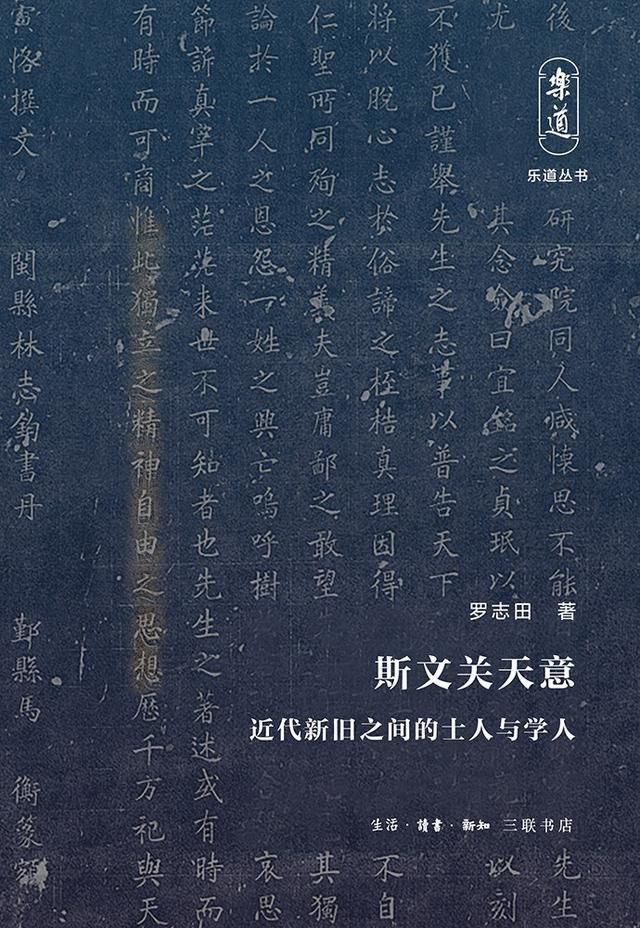 樂道
乐道丛书
後研究院同人咸懷思不能
先生
尤其念僉曰宜銘之貞珉以
以刻
不獲已謹舉先生之志事以普告天下
將以脫心志於俗諦之桎梏真理因得
不自
仁聖所同殉之精義夫豈庸鄙之敢望
其獨
論於一人之恩怨一姓之興亡嗚呼樹
哀思
節訴真宰之茫茫来世不可知者也先生之著述或有時而
有時而可商惟此獨立之精神自由之思想歷千万祀與天
寅恪撰文 閩縣林志鈞書丹 鄞縣馬衡篆額
罗志田 著
斯文关天意
近代新旧之间的士人与学人
生活·讀書·新知 三联书店